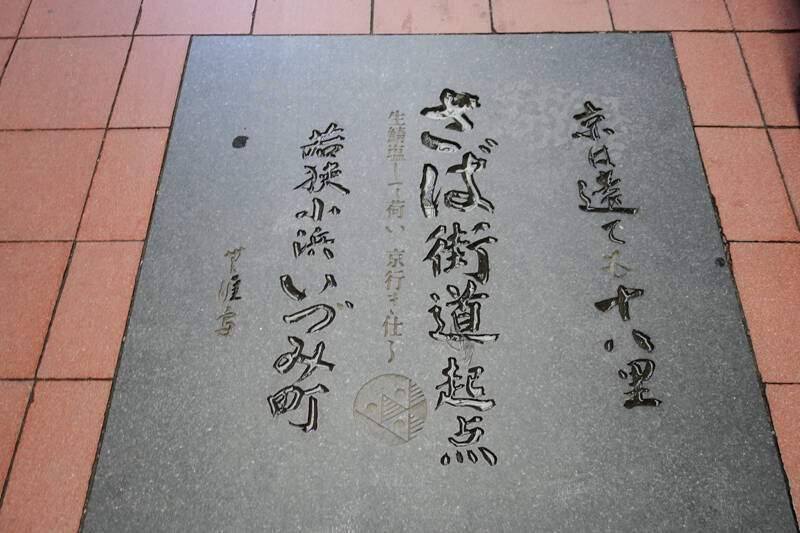 京は遠ても十八里
さば街道起点
生鯖塩して荷い、京行き仕る
若狭小浜いづみ町